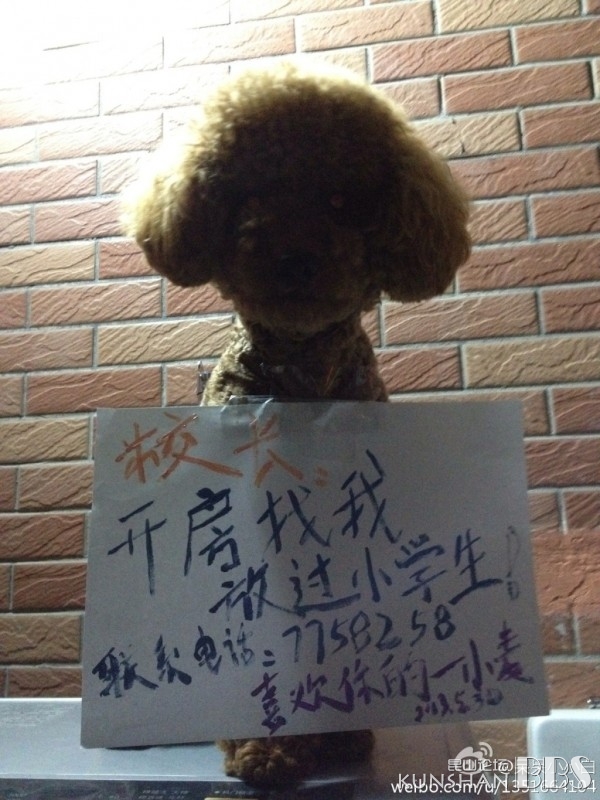 校长:
开房找我
放过小学生!
联系电话: 7758258
喜欢你的一小麦
2013.5.30
昆山论坛
KUNSHAN BBS
weibo.com/u/1351664194